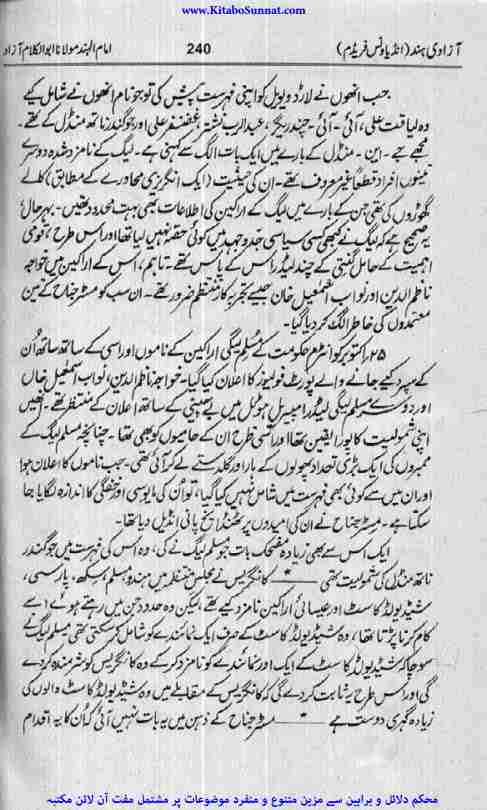 www.KitaboSunnat.com
آزادی ہند (انڈیا ونس فریڈم)
240
امام الہند مولانا ابوالکلام آزاد
جب انھوں نے لارڈ ویول کو اپنی فہرست پیش کی تو جو نام انھوں نے شامل کیے
وہ لیاقت علی، آئی۔ آئی۔ چندریگر، عبدالرب نشتر، غضنفر علی اور جوگندر ناتھ منڈل کے تھے۔
مجھے جے۔ این۔ منڈل کے بارے میں ایک بات الگ سے کہنی ہے۔ لیگ کے نامزد شدہ دوسرے
تینوں افراد قطعاً غیر معروف تھے۔ ان کی حیثیت (ایک انگریزی محاورے کے مطابق) کالے
گھوڑوں کی تھی جن کے بارے میں لیگ کے اراکین کی اطلاعات بھی بہت محدود تھیں۔ بہرحال
یہ صحیح ہے کہ لیگ نے کبھی کسی سیاسی جدوجہد میں کوئی حصّہ نہیں لیا تھا اور اس طرح، قومی
اہمیت کے حامل گنتی کے چند لیڈر اس کے پاس تھے۔ تاہم، اس کے اراکین میں خواجہ
ناظم الدین اور نواب اسمٰعیل خان جیسے تجربہ کار منتظم ضرور تھے۔ ان سب کو مسٹر جناح کے تین
معتمدوں کی خاطر الگ کر دیا گیا۔
۲۵ اکتوبر کو انٹرم حکومت کے مُسلم لیگی اراکین کے ناموں اور اسی کے ساتھ ساتھ اُن
کے سپرد کیے جانے والے پورٹ فولیوز کا اعلان کیا گیا۔ خواجہ ناظم الدین، نواب اسمٰعیل خاں
اور دوسرے مسلم لیگی لیڈر امپیریل ہوٹل میں بے چینی کے ساتھ اعلان کے منتظر تھے۔ انھیں
اپنی شمولیت کا پورا یقین تھا اور اسی طرح ان کے حامیوں کو بھی تھا۔ چنانچہ مسلم لیگ کے
ممبروں کی ایک بڑی تعداد پھولوں کے ہار اور گلدستے لے کر آئی تھی۔ جب ناموں کا اعلان ہوا
اور ان میں سے کوئی بھی فہرست میں شامل نہیں کیا گیا، تو اُن کی مایوسی اور خفگی کا اندازہ لگایا جا
سکتا ہے۔ مسٹر جناح نے ان کی امیدوں پر ٹھنڈا یخ پانی انڈیل دیا تھا۔
ایک اس سے بھی زیادہ مضحک بات جو مسلم لیگ نے کی، وہ اس کی فہرست میں جوگندر
ناتھ منڈل کی شمولیت تھی —*— کانگریس نے مجلس منتظمہ میں ہندو، مسلم، سکھ، پارسی،
شیڈیولڈ کاسٹ اور عیسائی اراکین نامزد کیے تھے، لیکن وہ حدود جن میں رہتے ہوئے اسے
کام کرنا پڑتا تھا، وہ شیڈیولڈ کاسٹ کے صرف ایک نمائندے کو شامل کر سکتی تھی مسلم لیگ نے
سوچا کہ شیڈیولڈ کاسٹ کے ایک اور نمائندے کو نامزد کر کے وہ کانگریس کو شرمندہ کر دے
گی اور اس طرح یہ ثابت کر دے گی کہ کانگریس کے مقابلے میں وہ شیڈیولڈ کاسٹ والوں کی
زیادہ گہری دوست ہے —*— مسٹر جناح کے ذہن میں یہ بات نہیں آئی کہ اُن کا یہ اقدام
محکم دلائل و براہین سے مزین متنوع و منفرد موضوعات پر مشتمل مفت آن لائن مکتبہ